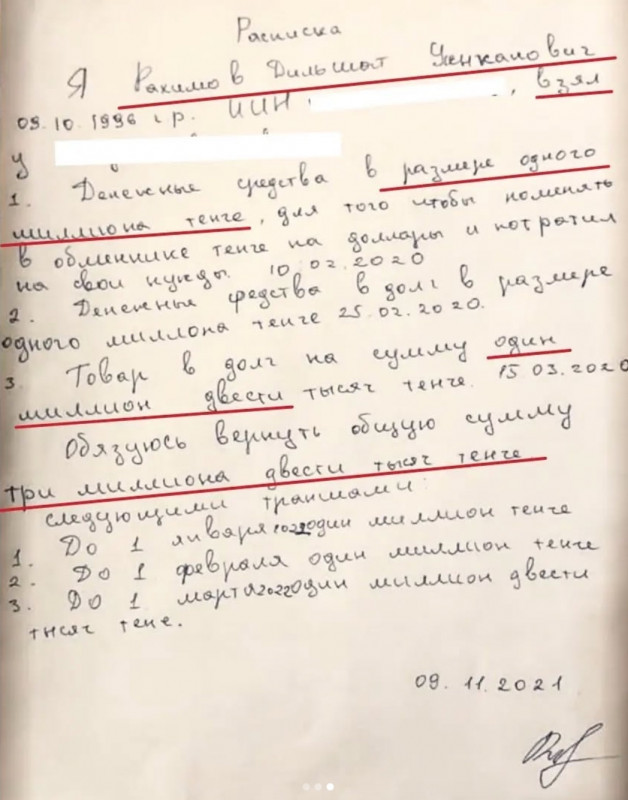 Расписка
Я Рахимов Дильшат Уенкапович
09.10.1996 г.р. ИИН , взял
у
1. Денежные средства в размере одного
миллиона тенге, для того чтобы поменять
в обменнике тенге на доллары и потратил
на свои нужды 10.02.2020
2. Денежные федства в долг в размере
одного миллона тенге 25.02.2020.
3 Товар в долг на сумму один
миллион двести тысяч тенге. 15.03.2020
Обязуюсь вернуть общую сумму
три миллиона двести тысяч тенге
следующими траншами:
1. До 1 января 2022 один миллион тенге
2. До 1 февраля один миллион тенге
3. До 1 марта 2022 один миллион двести
тысяч тене.
09.11.2021